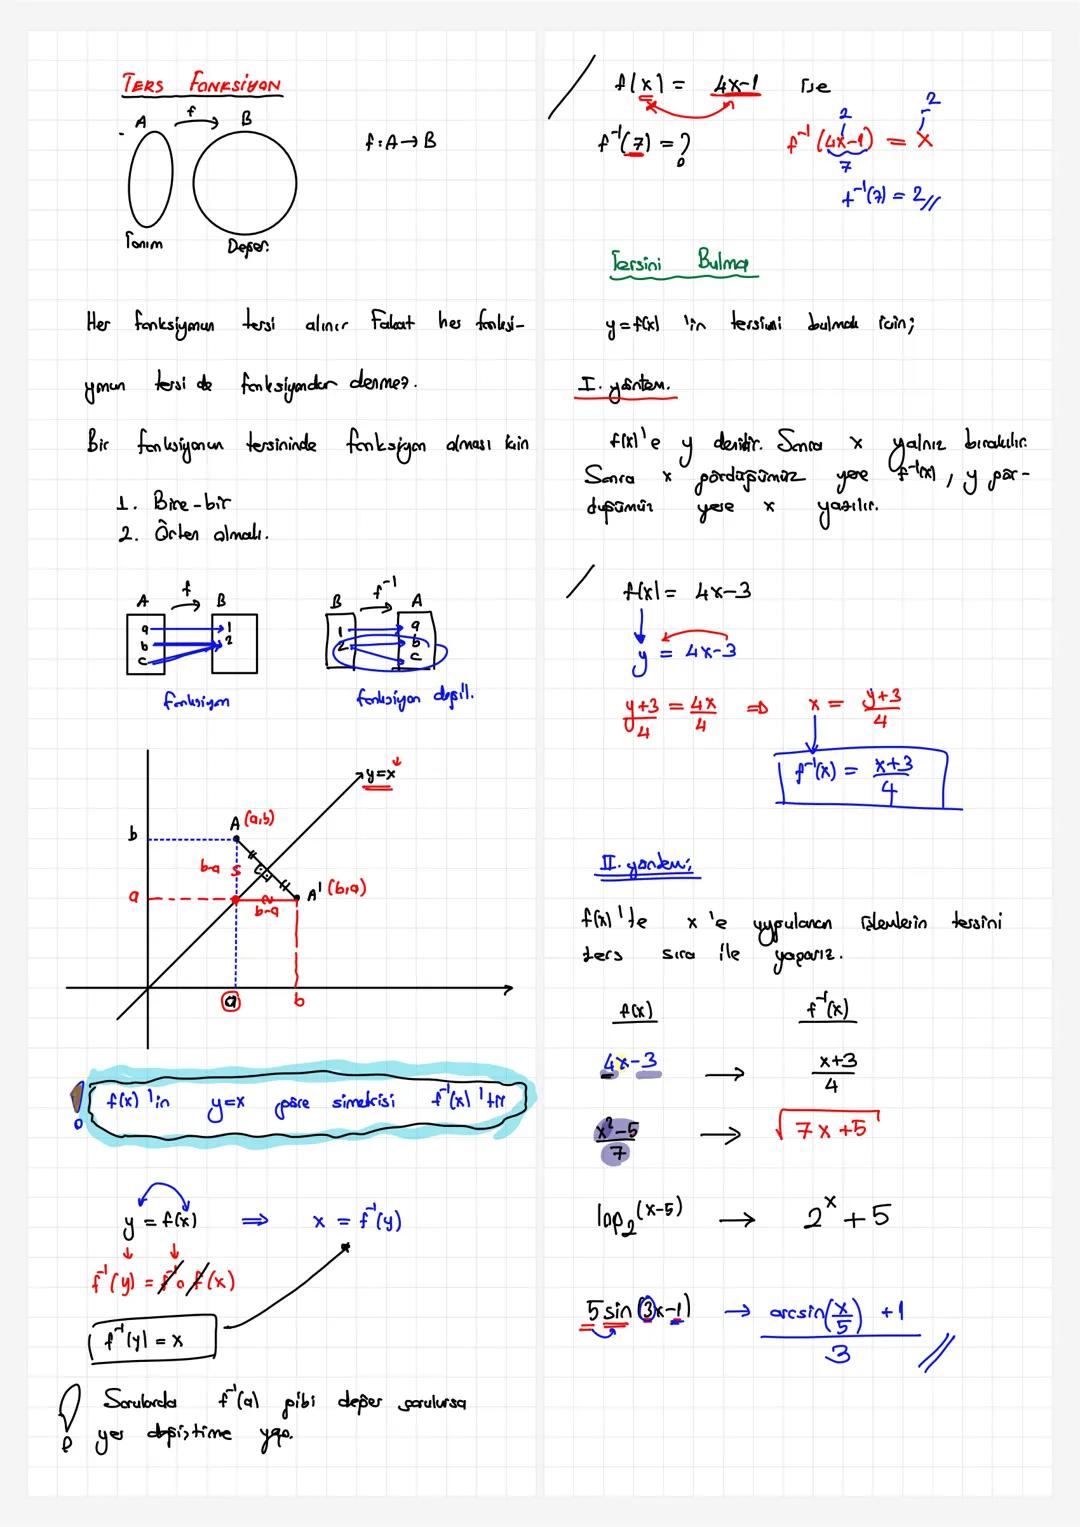 TERS FONKSİYON
A f B
f: A → B
Tanım Değer
Her fonksiyonun tersi alınır Fakat her fonksi-
yonun tersi de fonksiyondur denmez.
Bir fonksiyonun tersininde fonksiyon olması için
1. Bire-bir
2. Örten olmalı.
A f B
a 1
b 2
c
fonksiyon
B f⁻¹ A
1 a
2 b
c
fonksiyon değil.
y=x
A (a,b)
b
b-a
a
A' (b,a)
b-a
a b
f(x) 'in y=x göre simetrisi f⁻¹(x) 'tir
y = f(x) ⇒ x = f⁻¹(y)
f⁻¹(y) = f⁻¹o f(x)
f⁻¹(y) = x
Sorularda f⁻¹(a) gibi değer sorulursa
yer değiştirme yap.
f(x) = 4x-1 ise
f⁻¹(7) = ?
2 2
f⁻¹(4x-1) = x
7
f⁻¹(7) = 2//
Tersini Bulma
y=f(x) 'in tersini bulmak için;
I. yöntem.
f(x)'e y denilir. Sonra x yalnız bırakılır.
Sonra x gördüğümüz yere f⁻¹(x), y gör-
düğümüz yere x yazılır.
f(x) = 4x-3
y = 4x-3
y+3/4 = 4x/4 ⇒ x = y+3/4
f⁻¹(x) = x+3/4
II. yöntem;
f(x)'te x'e uygulanan işlemlerin tersini
ters sıra ile yaparız.
f(x) f⁻¹(x)
4x-3 → x+3/4
x²-5/7 → √7x+5
log₂(x-5) → 2ˣ+5
5 sin(3x-1) → arcsin(x/5) +1/3 //